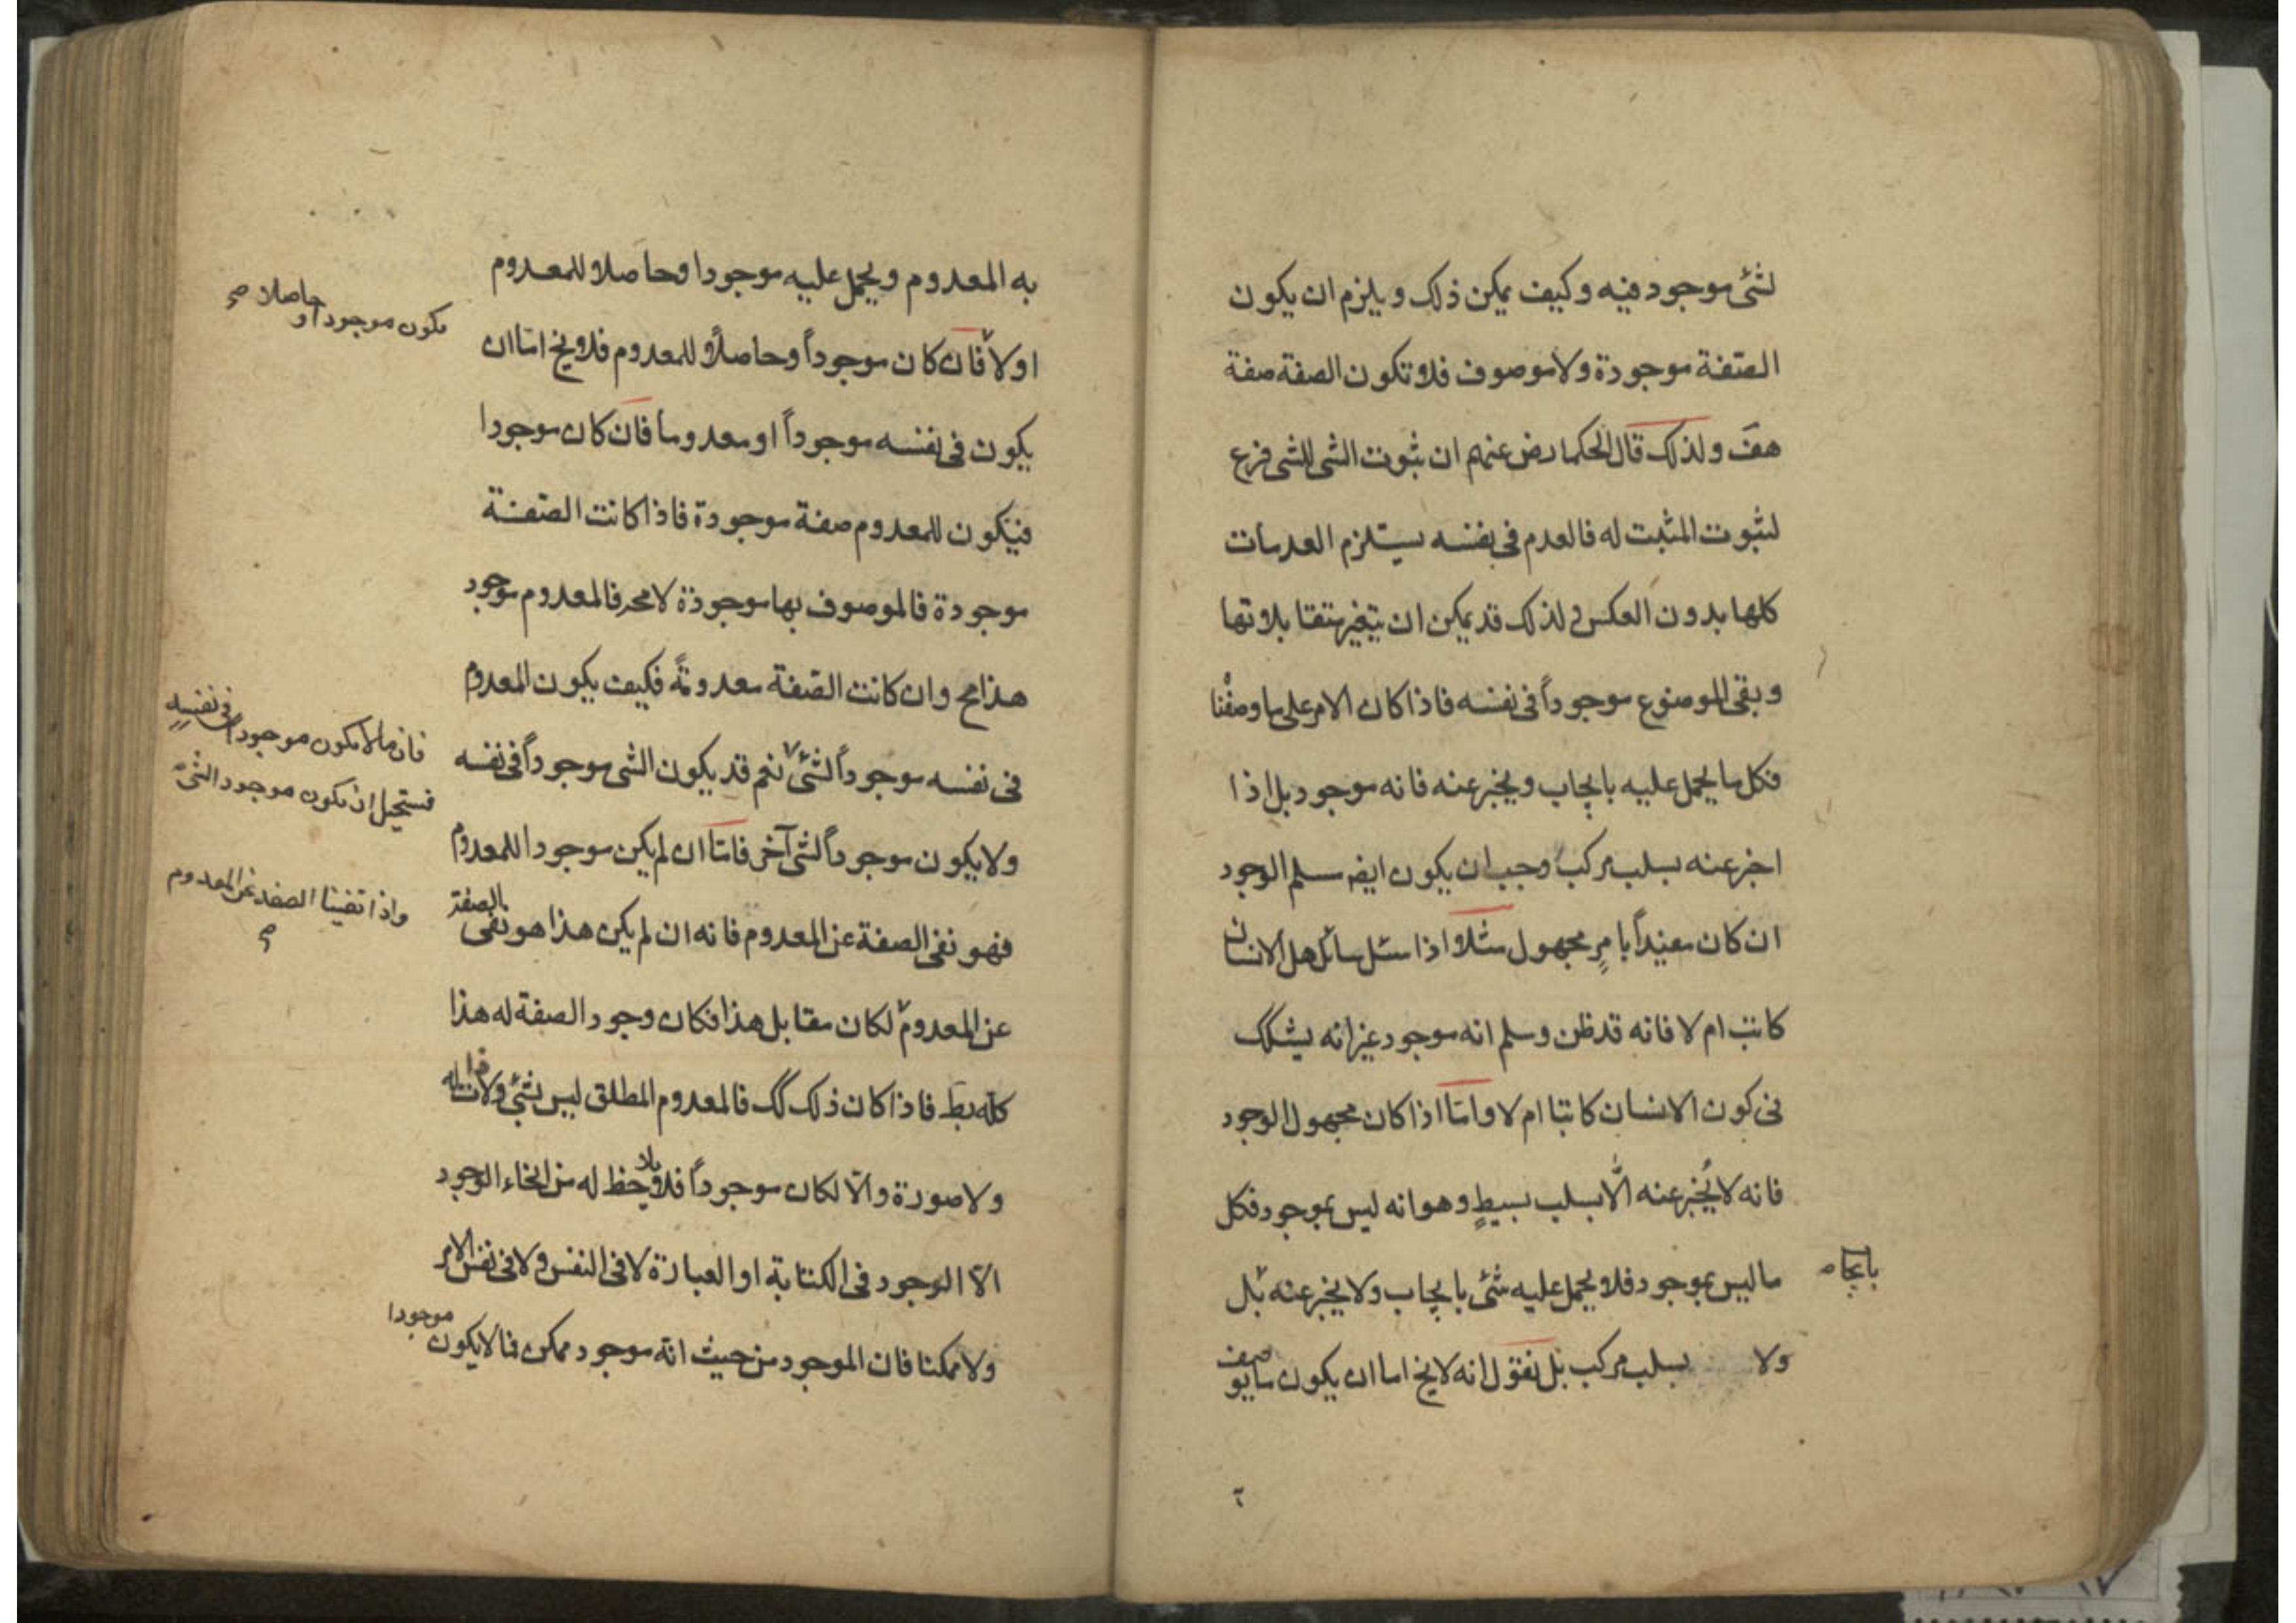 لشئ موجود فيه وكيف يمكن ذلك ويلزم ان يكون
الصّفة موجودة ولا موصوف فلا تكون الصفة صفة
هف ولذلك قال الحكما رض عنهم ان ثبوت الشى للشى فرع
لثبوت المثبت له فالعدم فى نفسه يستلزم العدمات
كلها بدون العكس ولذلك قد يمكن ان يتغير متقابلاتها
ويبقى الموضوع موجوداً فى نفسه فاذا كان الامر على ما وصفْنا
فكل ما يحمل عليه بايجاب ويخبر عنه فانه موجود بل اذا
اخبر عنه بسلب مركب وجب ان يكون ايضا مسلم الوجود
ان كان مفيداً بامرٍ مجهول مثلا اذا سئل سائل هل الانسان
كاتب ام لا فانه قد ظن وسلم انه موجود غير انه يشكك
فى كون الانسان كاتبا ام لا وامّا اذا كان مجهول الوجود
فانه لا يُخبر عنه الّا بسلب بسيطٍ وهو انه ليس بموجود فكل
ما ليس بموجود فلا يحمل عليه شئ بايجاب ولا يخبر عنه بل
بايجاب
ولا بسلب مركب بل نقول انه لا يخ اما ان يكون ما يوصف
به المعدوم ويحمل عليه موجودا وحاصلا للمعدوم
يكون موجودا و حاصلا صح
اولا فان كان موجوداً وحاصلاً للمعدوم فلا يخ امّا ان
يكون فى نفسه موجوداً او معدوما فان كان موجودا
فيكون للمعدوم صفة موجودة فاذا كانت الصّفة
موجودة فالموصوف بها موجودة لا محر فالمعدوم موجود
هذا مح وان كانت الصّفة معدومةً فكيف يكون المعدوم
فى نفسه موجوداً لشئ نعم قد يكون الشى موجوداً فى نفسه
فان ما لا يكون موجودا فى نفسه
فستحيل ان يكون موجودا لشئ
ولا يكون موجوداً لشى آخر فامّا ان لم يكن موجودا للمعدوم
فهو نفى الصفة عن المعدوم فانه ان لم يكن هذا هو نفى الصفة
واذا نفينا الصفة عن المعدوم
صح
عن المعدوم لكان مقابل هذا فكان وجود الصفة له هذا
كلّه بط فاذا كان ذلك كك فالمعدوم المطلق ليس بشئ ولا ذات له
ولا صورة والّا لكان موجوداً فلا حظ له من انحاء الوجود
الّا الوجود فى الكتابة او العبارة لا فى النفس ولا فى نفس الامر
ولا ممكنا فان الموجود من حيث انّه موجود ممكن فما لا يكون موجودا